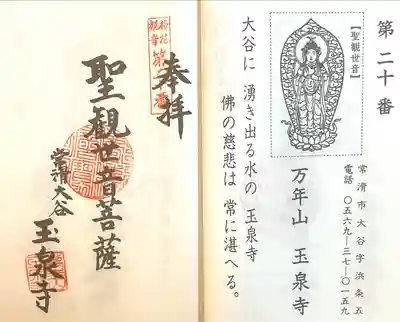 第二十番
【聖観世音】
常滑市大谷字浜条五
電話 〇五六九―三七―〇一五九
万年山 玉泉寺
大谷に 湧き出る水の 玉泉寺
佛の慈悲は 常に湛へる。
奉拝
聖観世音菩薩
常滑大谷
玉泉寺